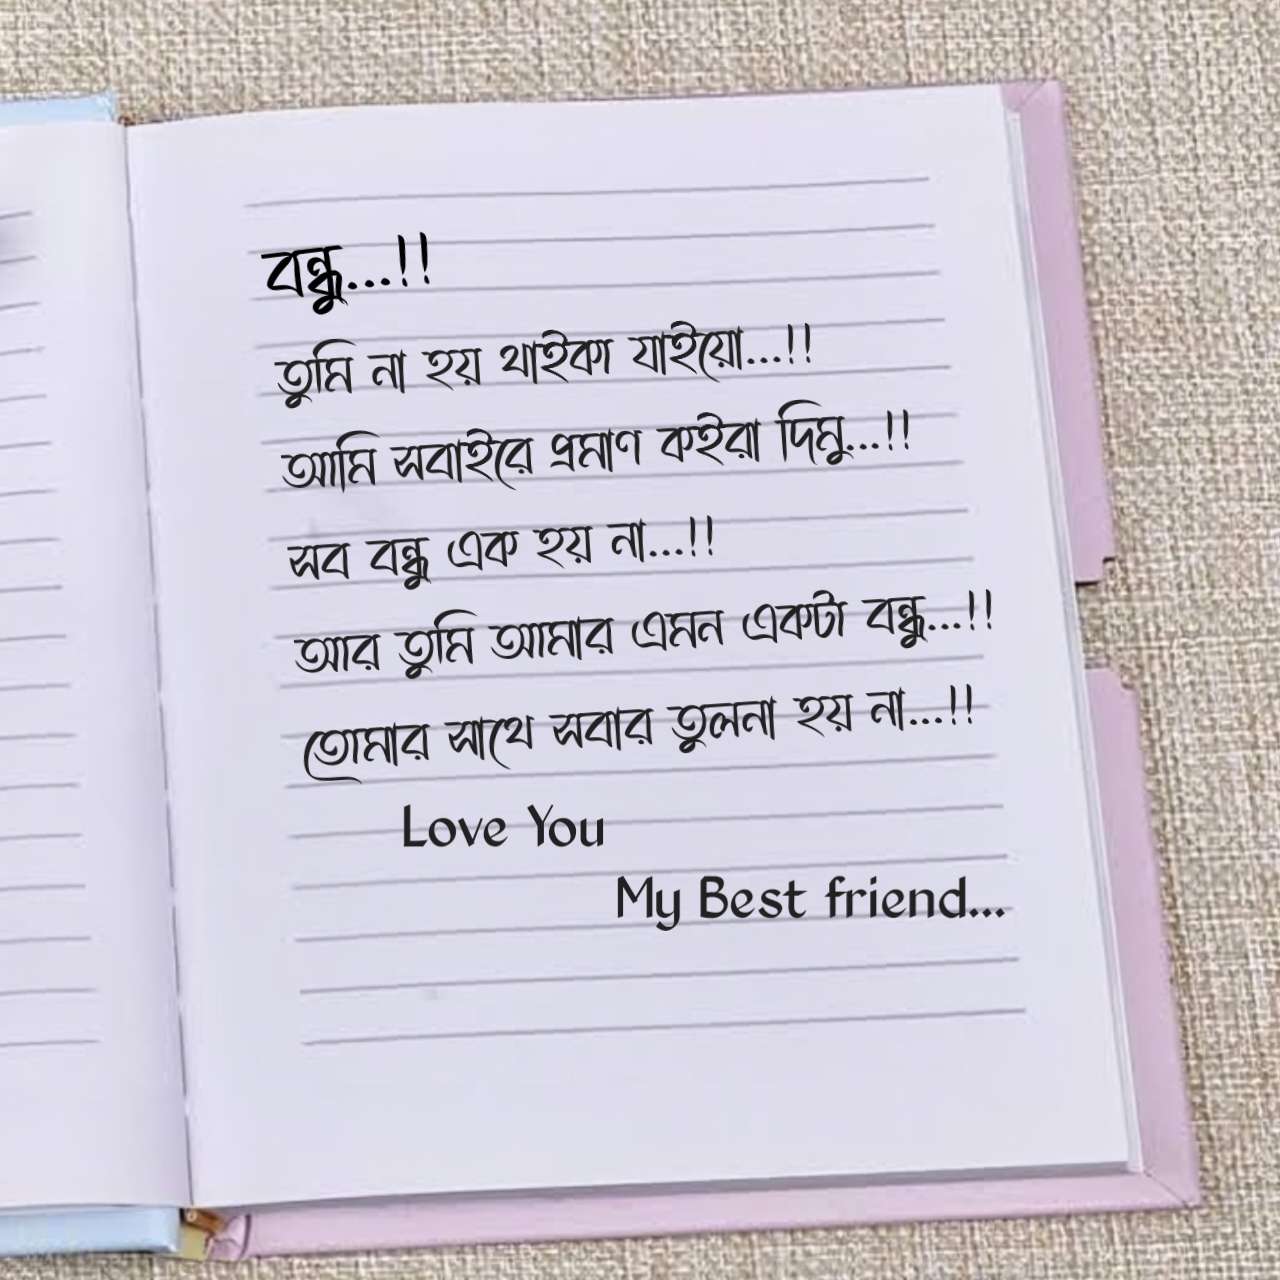 বন্ধু...!!
তুমি না হয় থাইকা যাইয়ো...!!
আমি সবাইরে প্রমাণ কইরা দিমু...!!
সব বন্ধু এক হয় না...!!
আর তুমি আমার এমন একটা বন্ধু...!!
তোমার সাথে সবার তুলনা হয় না...!!
Love You
My Best friend...